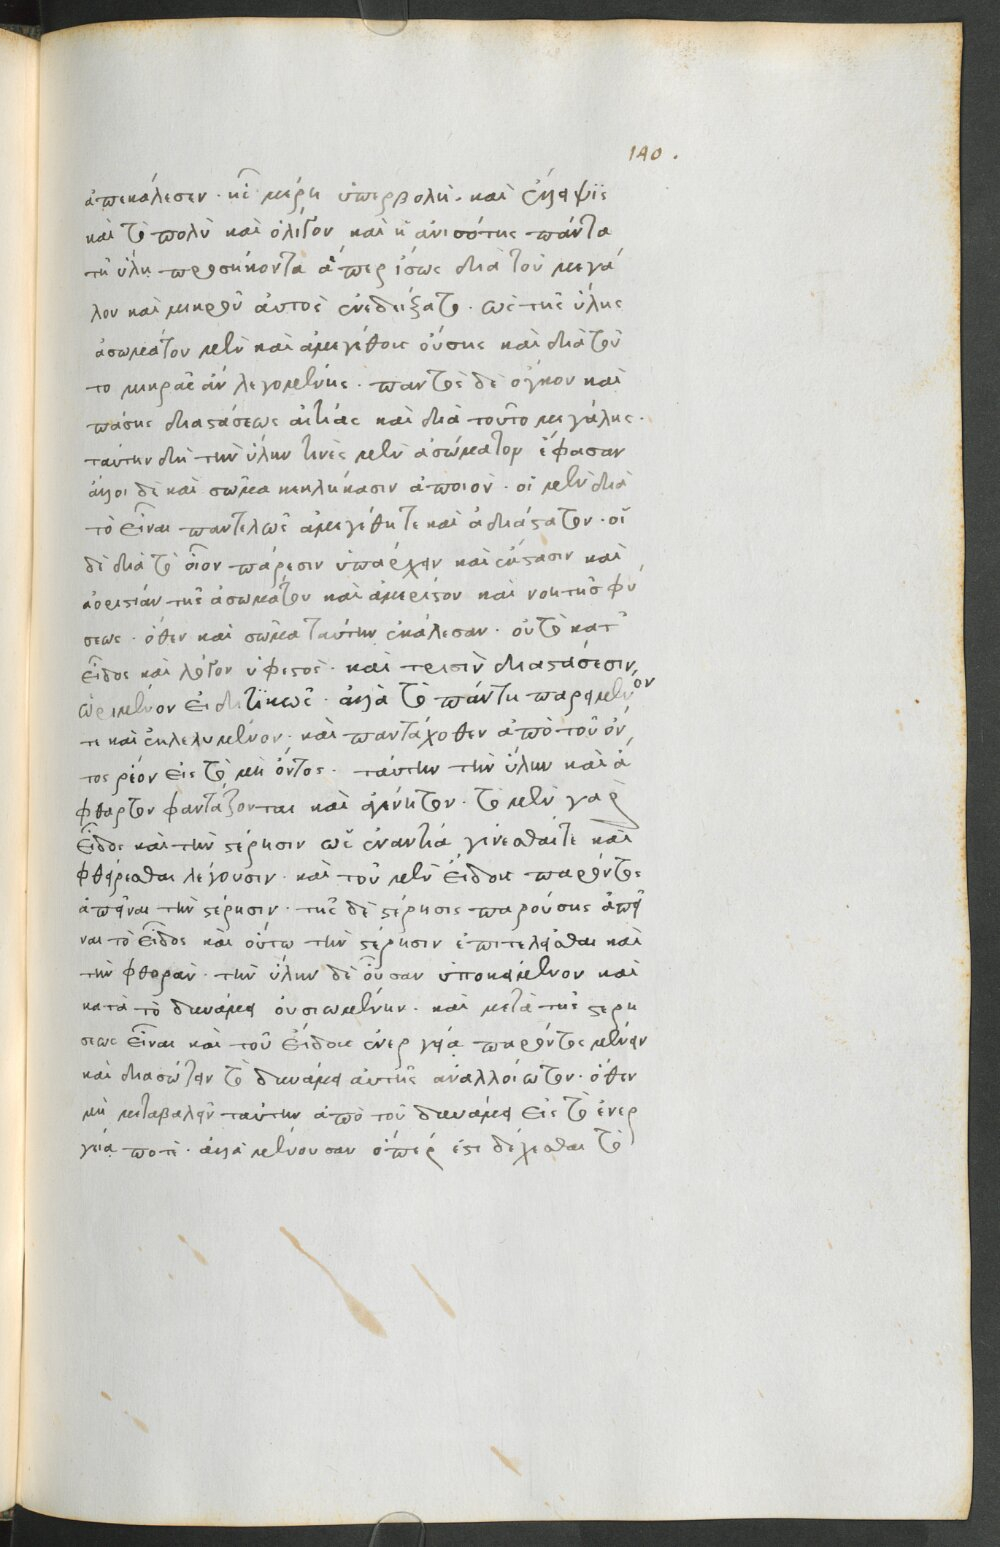 140.
ἀπεκάλεσεν. καὶ μέρη ὑπερβολὴ. καὶ ἔλλειψις
καὶ τὸ πολὺ καὶ ὀλίγον καὶ ἡ ἀνισότης πάντα
τῆ ὕλη προσήκοντα ἅπερ ἴσως διὰ τοῦ μεγά
λου καὶ μικροῦ αὐτὸς ἐνεδείξατο. ὡς τῆς ὕλης
ἀσωμάτου μὲν καὶ ἀμεγέθους οὔσης καὶ διὰ τοῦ
το μικρᾶς ἂν λεγομένης. παντὸς δὲ ὄγκου καὶ
πάσης διαστάσεως αἰτίας καὶ διὰ τοῦτο μεγάλης.
ταύτην δὴ τὴν ὕλην τινὲς μὲν ἀσώματον ἔφασαν
ἄλλοι δὲ καὶ σῶμα κεκλήκασιν ἄποιον. οἱ μὲν διὰ
τὸ εἶναι παντελῶς ἀμεγέθητε καὶ ἀδιάστατον. οἱ
δὲ διὰ τὸ οἷον πάρεσιν ὑπάρχειν καὶ ἔκστασιν καὶ
ἀοριστίαν τῆς ἀσωμάτου καὶ ἀμερίστου καὶ νοητῆς φύ
σεως. ὅθεν καὶ σῶμα ταύτην ἐκάλεσαν. οὐ τὸ κατ'
εἶδος καὶ λόγον ὑφεστὸς. καὶ τρισὶν διαστάσεσιν
ὡρισμένον εἰδητικῶς. ἀλλὰ τὸ πάντη παρειμένον
τε καὶ ἐκλελυμένον. καὶ πανταχόθεν ἀπὸ τοῦ ὄν
τος ῥέον εἰς τὸ μὴ ὄντος. ταύτην τὴν ὕλην καὶ ἄ
φθαρτον φαντάζονται καὶ ἀγένητον. τὸ μὲν γὰρ
εἶδος καὶ τὴν στέρησιν ὡς ἐναντία γίνεσθαίτε καὶ
φθείρεσθαι λέγουσιν. καὶ τοῦ μὲν εἴδους παρόντος
ἀπεῖναι τὴν στέρησιν. τῆς δὲ στέρησις παρούσης ἀπεῖ
ναι τὸ εἶδος καὶ οὕτω τὴν στέρησιν ἐπιτελεῖσθαι καὶ
τὴν φθορὰν. τὴν ὕλην δὲ οὖσαν ὑποκείμενον καὶ
κατὰ τὸ δυνάμει οὐσιωμένην. καὶ μετὰ τῆς στερή
σεως εἶναι καὶ τοῦ εἴδους ἐνεργεία παρόντος μένειν
καὶ διασώζειν τὸ δυνάμει αὐτῆς ἀναλλοίωτον. ὅθεν
μὴ μεταβαλεῖν ταύτην ἀπὸ τοῦ δυνάμει εἰς τὸ ἐνερ
γεία ποτὲ. ἀλλὰ μένουσαν ὅπέρ ἐστι δέχεσθαι τὸ